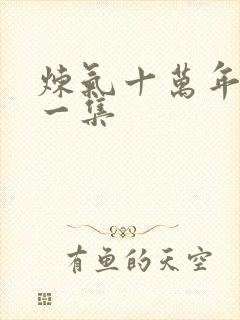 煉氣十萬年
一集
有魚的天空